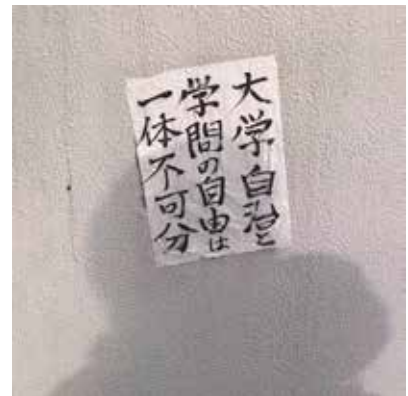 大学自治と
学問の自由は
一体不可分